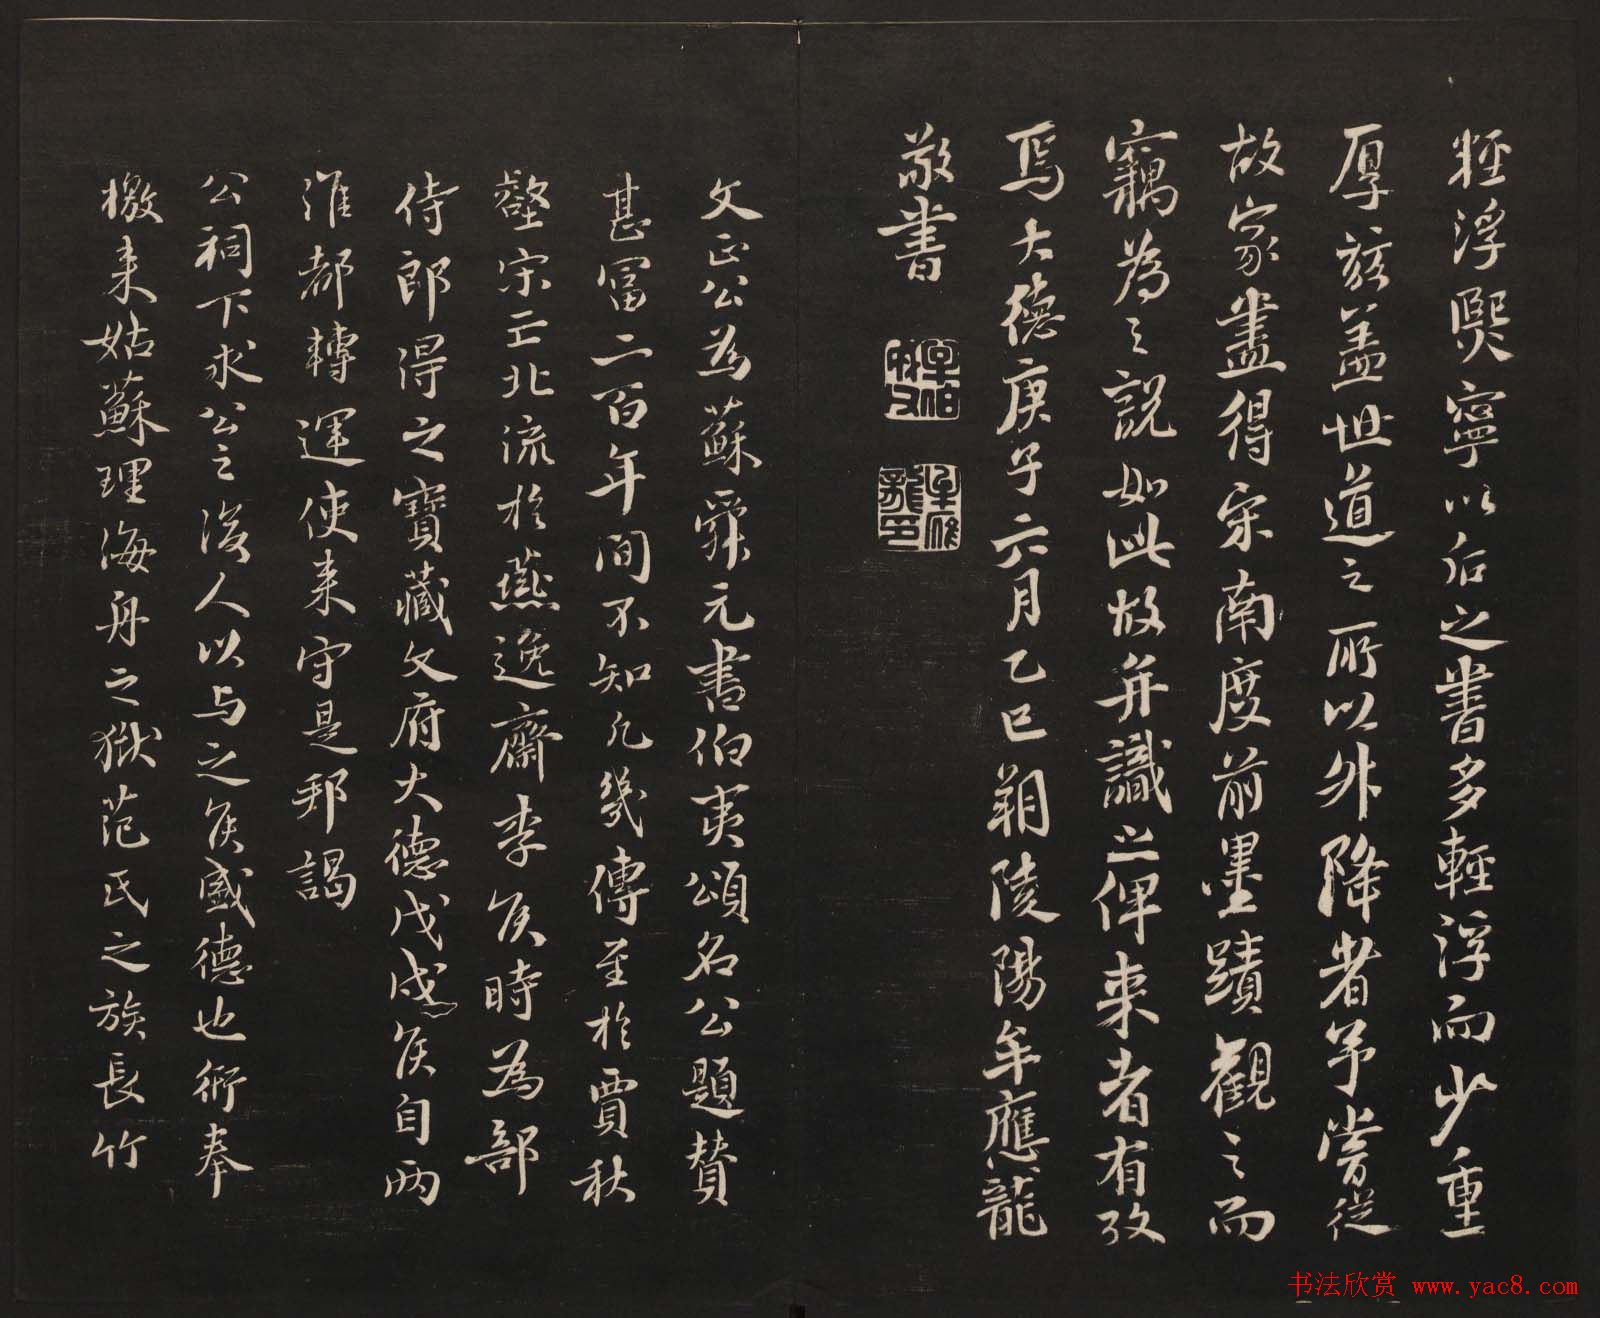 輕浮熙寧以后之書多輕浮而少重
厚茲盖世道之所以外降者予嘗從
故家盡得宋南度前墨蹟觀之而
竊為之說如此故并識之俾来者有攷
焉大德庚子六月乙巳朔陵陽牟應龍
敬書
文正公為蘇舜元書伯夷頌名公題賛
甚富二百年間不知凡幾傳至於賈秋
壑宋亡北流於燕逸齋李侯時為部
侍郎得之寶藏文府大德戊戌侯自兩
淮都轉運使来守是邦謁
公祠下求公之後人以与之侯盛德也衍奉
檄来姑蘇理海舟之獄范氏之族長竹
书法欣赏 www.yac8.com